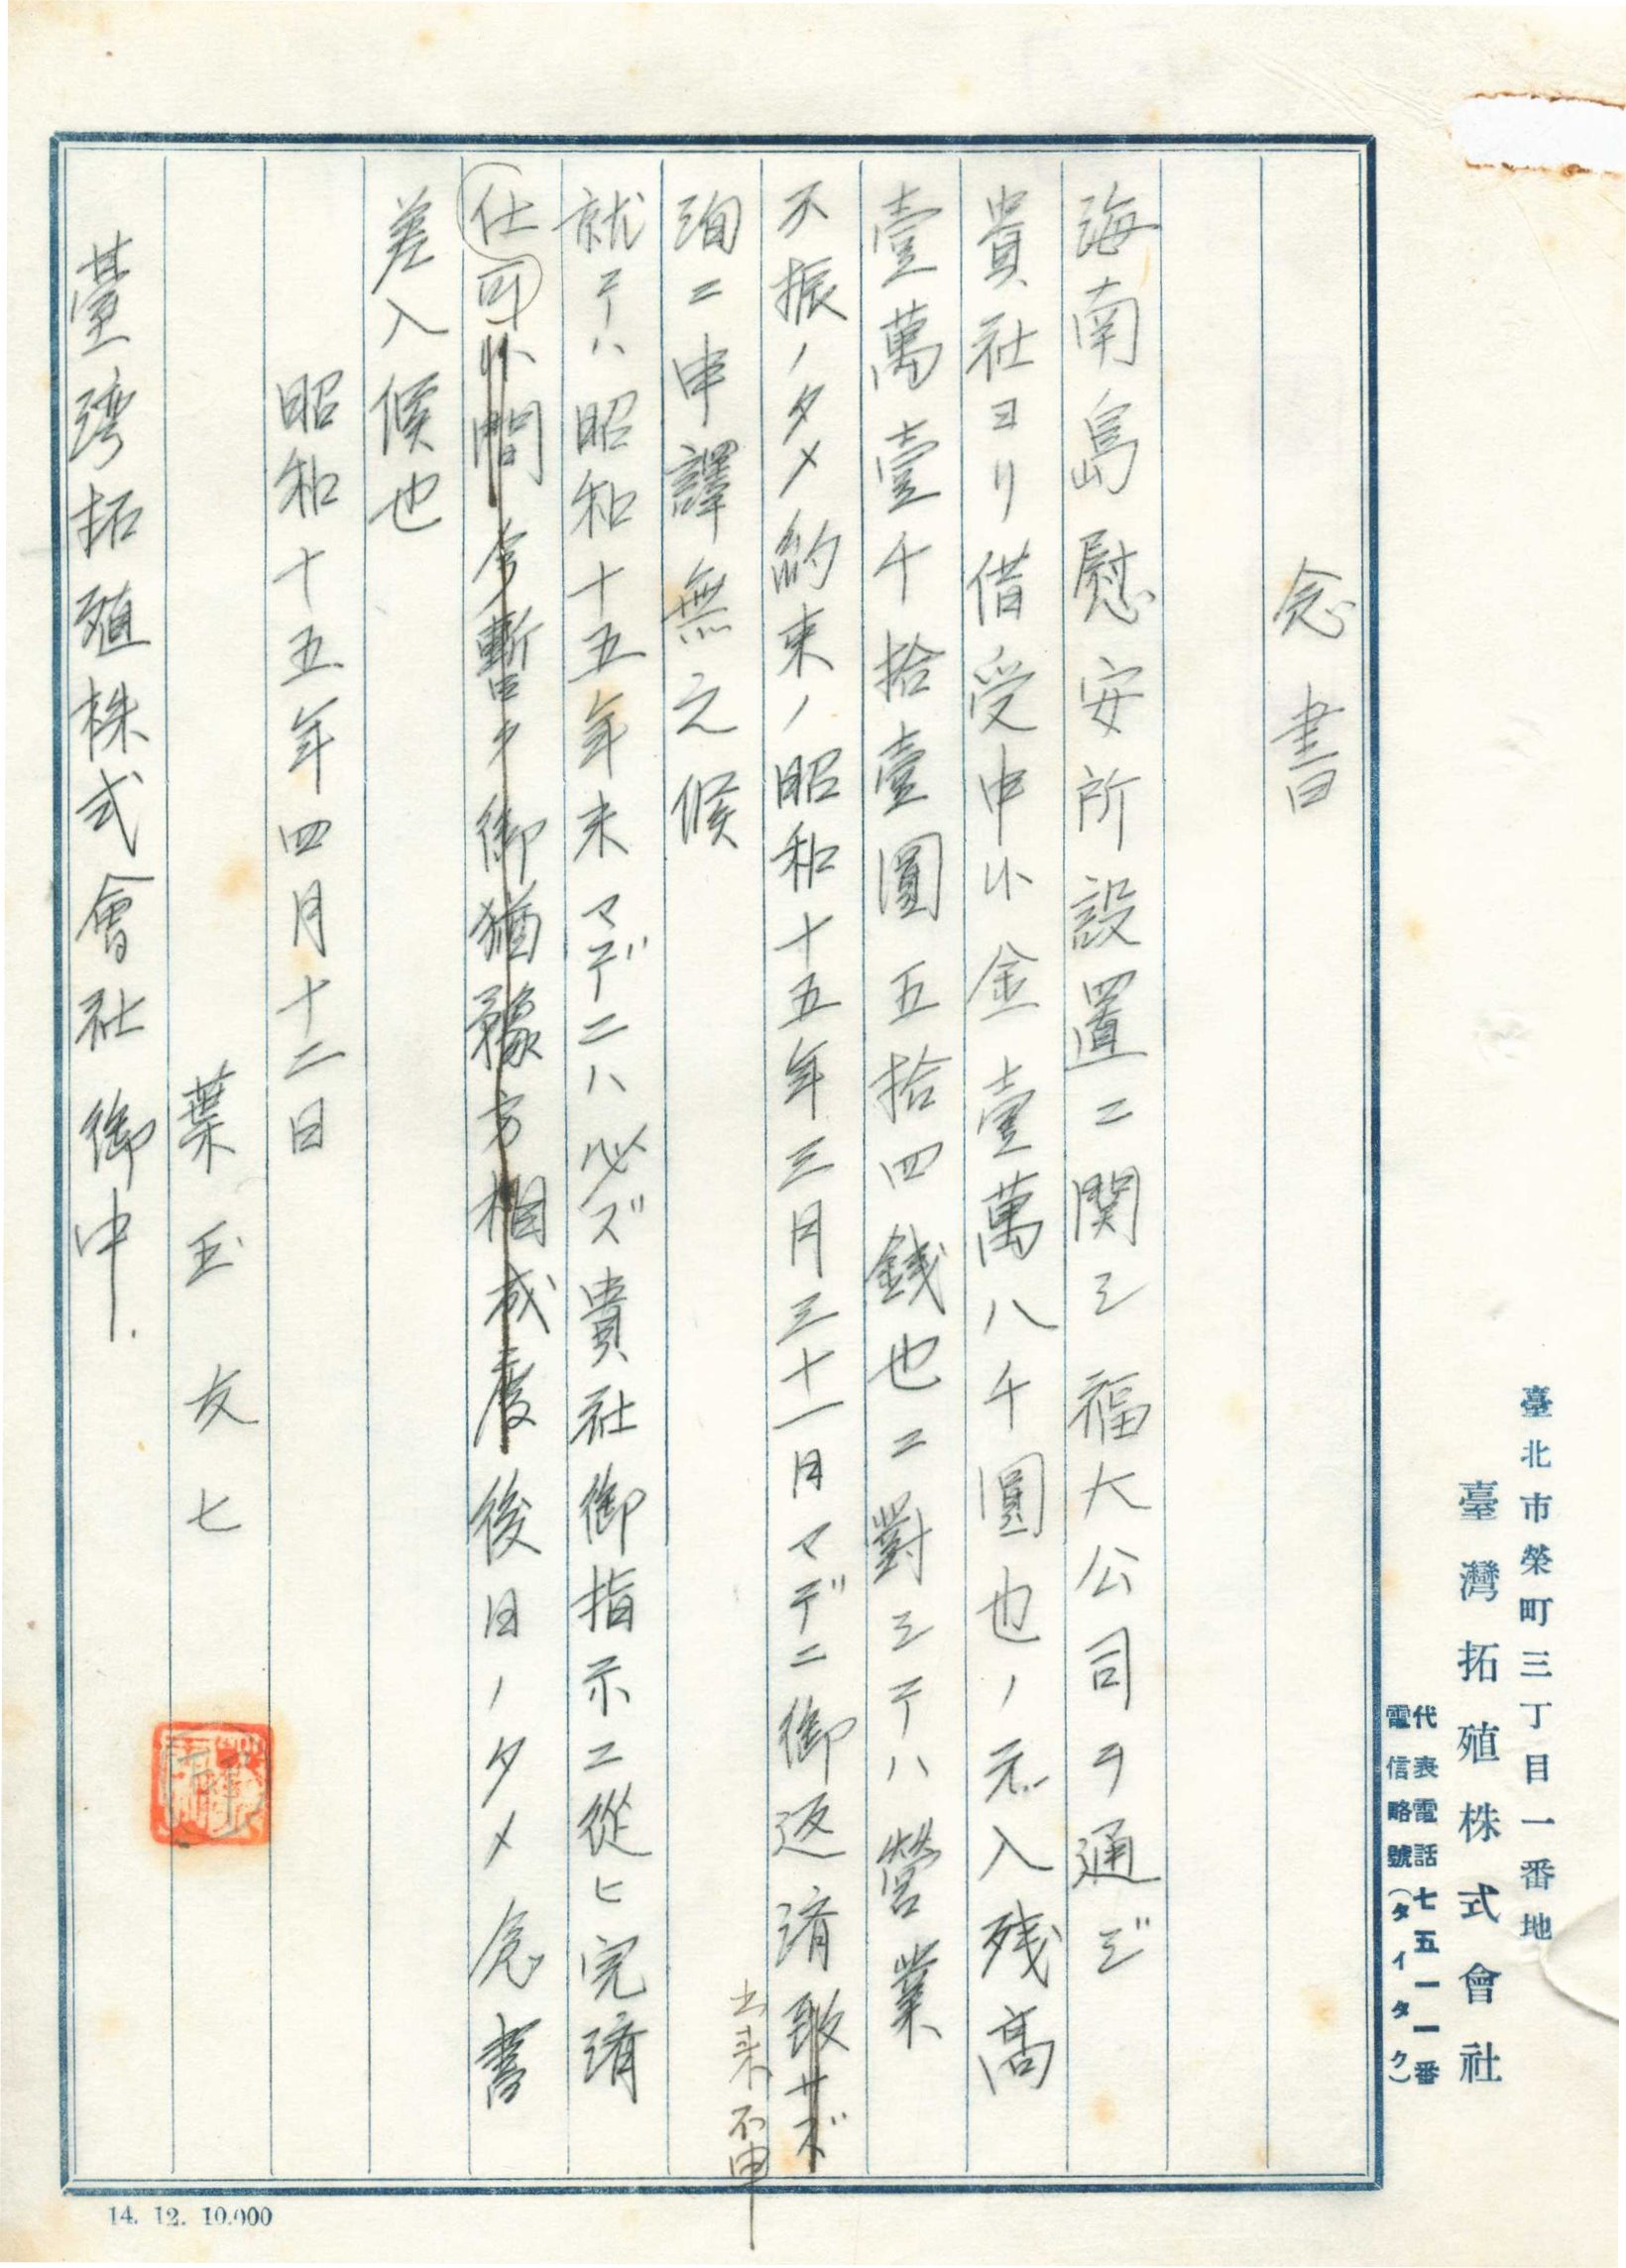 臺北市榮町三丁目一番地
臺灣拓殖株式會社
代表電話七五一一番
電信略號(タイタク)
念書
海南島慰安所設置ニ関シ福大公司ヲ通ジ
貴社ヨリ借受申候金壹萬八千圓也ノ元入残髙
壹萬壹千拾壹圓五拾四銭也ニ對シテハ營業
不振ノタメ約束ノ昭和十五年三月三十一日マデニ御返済致サズ
出来不申
洵ニ申譯無之候
就テハ昭和十五年末マデニハ必ズ貴社御指示ニ從ヒ完済
仕可候間今暫ク御猶豫方相成度後日ノタメ念書
差入候也
昭和十五年四月十二日
葉玉友七
臺湾拓殖株式會社御中.
14. 12. 10.000